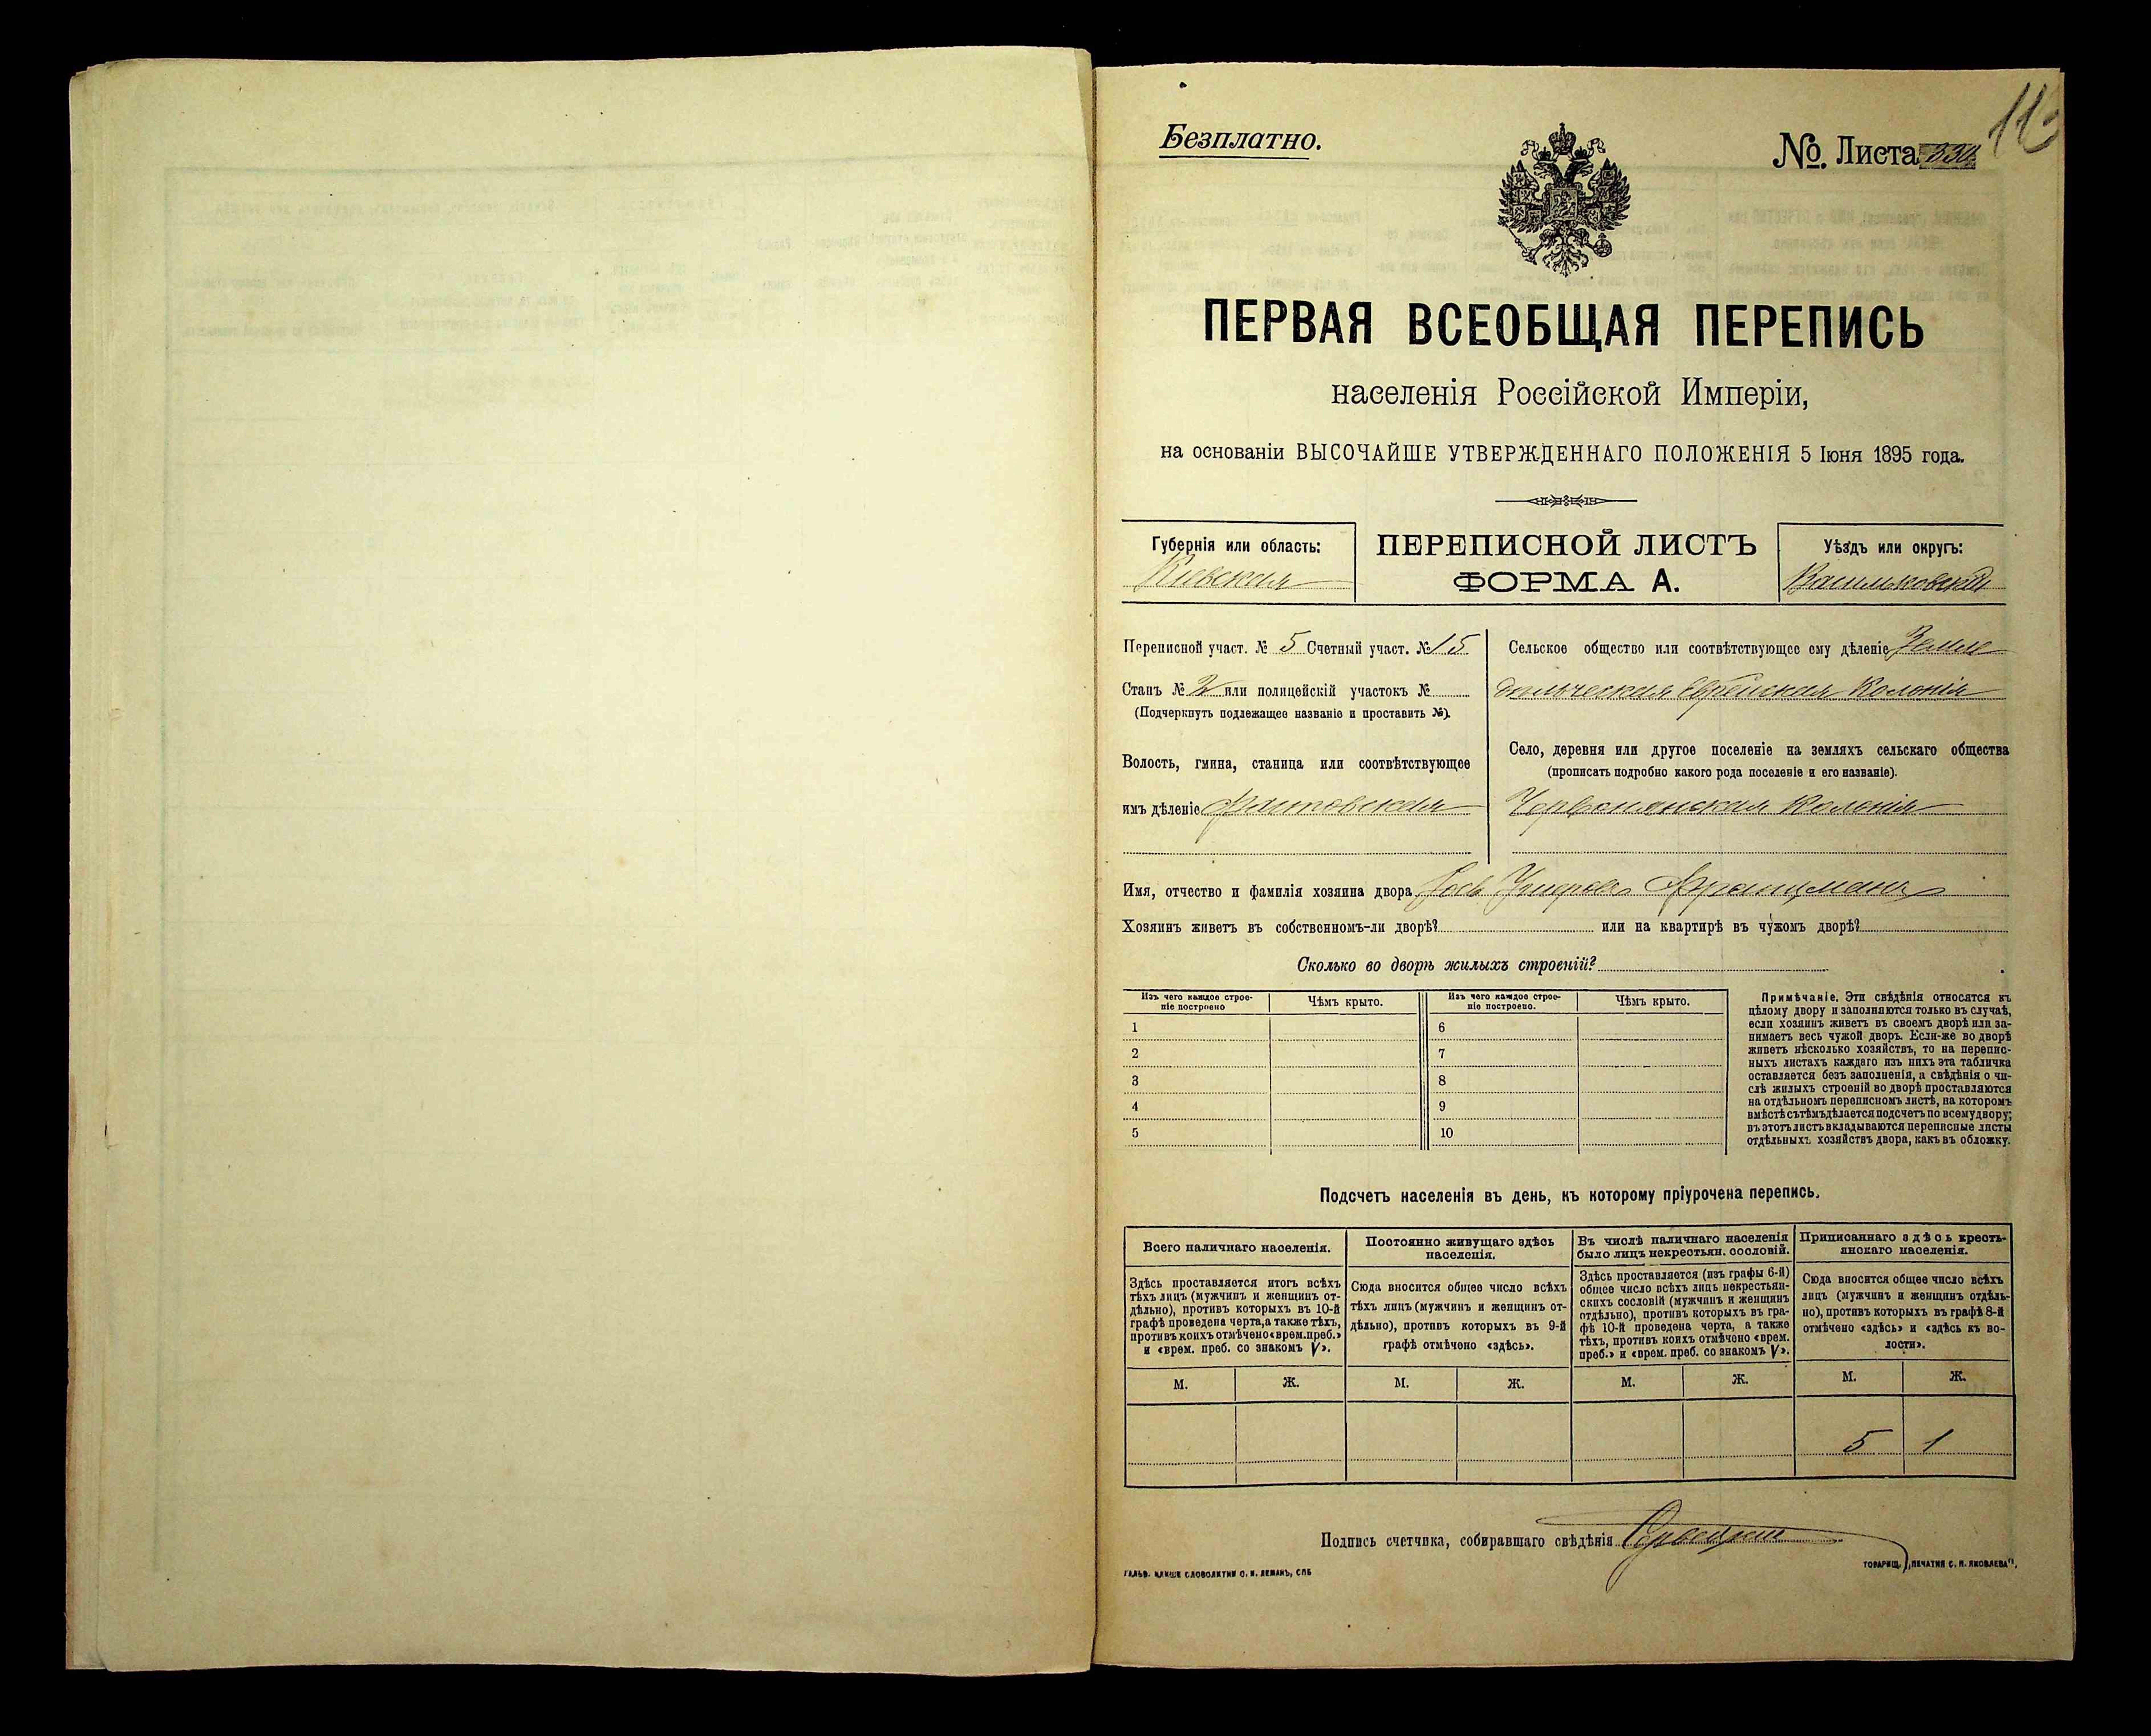 Безплатно.
№ Листа 330
113
ПЕРВАЯ ВСЕОБЩАЯ ПЕРЕПИСЬ
населенія Россійской Имперіи,
на основаніи ВЫСОЧАЙШЕ УТВЕРЖДЕННАГО ПОЛОЖЕНІЯ 5 Іюня 1895 года.
Губернія или область:
Киевская
ПЕРЕПИСНОЙ ЛИСТЪ
ФОРМА А.
Уѣздъ или округъ:
Васильковскій
Переписной участ. № 5 Счетный участ. № 15
Станъ № 2 или полицейскій участокъ №
(Подчеркнуть подлежащее названіе и проставить №).
Волость, гмина, станица или соотвѣтствующее
имъ дѣленіе Фастовская
Сельское общество или соотвѣтствующее ему дѣленіе Земле
дѣльческая Еврейская Колонія
Село, деревня или другое поселеніе на земляхъ сельскаго общества
(прописать подробно какого рода поселеніе и его названіе).
Червонянская Колонія
Имя, отчество и фамилія хозяина двора Францманъ
Хозяинъ живетъ въ собственномъ-ли дворѣ? или на квартирѣ въ чужомъ дворѣ?
Сколько во дворѣ жилыхъ строеній?
Изъ чего каждое строе-
ніе построено
Чѣмъ крыто.
Изъ чего каждое строе-
ніе построено.
Чѣмъ крыто.
1 6
2 7
3 8
4 9
5 10
Примѣчаніе. Эти свѣдѣнія относятся къ
цѣлому двору и заполняются только въ случаѣ,
если хозяинъ живетъ въ своемъ дворѣ или за-
нимаетъ весь чужой дворъ. Если-же во дворѣ
живетъ нѣсколько хозяйствъ, то на перепис-
ныхъ листахъ каждаго изъ нихъ эта табличка
оставляется безъ заполненія, а свѣдѣнія о чи-
слѣ жилыхъ строеній во дворѣ проставляются
на отдѣльномъ переписномъ листѣ, на которомъ
вмѣстѣ съ тѣмъ дѣлается подсчетъ по всему двору;
въ этотъ листъ вкладываются переписные листы
отдѣльныхъ хозяйствъ двора, какъ въ обложку.
Подсчетъ населенія въ день, къ которому пріурочена перепись.
Всего наличнаго населенія.
Постоянно живущаго здѣсь
населенія.
Въ числѣ наличнаго населенія
было лицъ некрестьян. сословій.
Приписаннаго здѣсь кресть-
янскаго населенія.
Здѣсь проставляется итогъ всѣхъ
тѣхъ лицъ (мужчинъ и женщинъ от-
дѣльно), противъ которыхъ въ 10-й
графѣ проведена черта, а также тѣхъ,
противъ коихъ отмѣчено «врем. преб.»
и «врем. преб. со знакомъ V».
Сюда вносится общее число всѣхъ
тѣхъ лицъ (мужчинъ и женщинъ от-
дѣльно), противъ которыхъ въ 9-й
графѣ отмѣчено «здѣсь».
Здѣсь проставляется (изъ графы 6-й)
общее число всѣхъ лицъ некрестьян-
скихъ сословій (мужчинъ и женщинъ
отдѣльно), противъ которыхъ въ гра-
фѣ 10-й проведена черта, а также
тѣхъ, противъ коихъ отмѣчено «врем.
преб.» и «врем. преб. со знакомъ V».
Сюда вносится общее число всѣхъ
лицъ (мужчинъ и женщинъ отдѣль-
но), противъ которыхъ въ графѣ 8-й
отмѣчено «здѣсь» и «здѣсь къ во-
лости».
М. Ж. М. Ж. М. Ж. М. Ж.
5 1
Подпись счетчика, собиравшаго свѣдѣнія
ГАЛЬВ. КЛИШЕ СЛОВОЛИТНИ О. И. ЛЕМАНЪ, СПБ
ТОВАРИЩ. „ПЕЧАТНЯ С. П. ЯКОВЛЕВА".